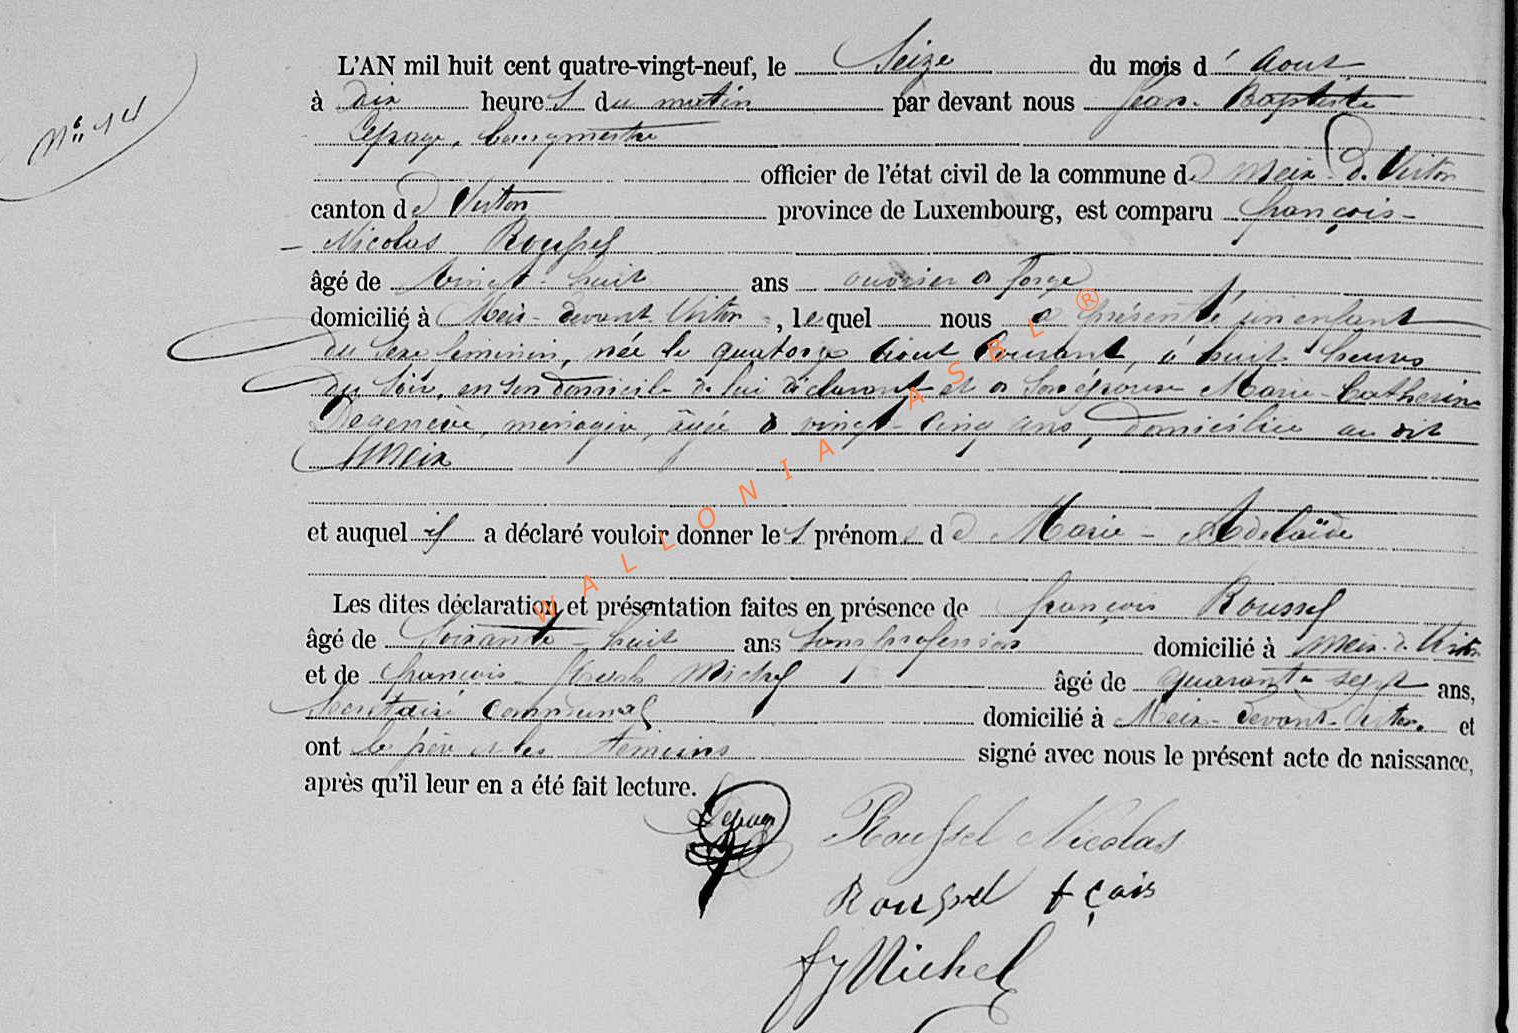 N° 14
L'AN mil huit cent quatre-vingt-neuf, le Seize du mois d'Aout
à Dix heures du matin par devant nous Jean-Baptiste
Lepage, bourgmestre
officier de l'état civil de la commune de Meix-d.-Virton
canton de Virton province de Luxembourg, est comparu françois-
Nicolas Roussel
âgé de vingt-huit ans ouvrier de forge
domicilié à Meix-devant-Virton, lequel nous a présenté un enfant
du sexe féminin, née le quatorze Aout Courant, à huit heures
du soir, en son domicile de lui déclarant et de son épouse Marie-Catherine
Degenève, ménagère, âgée de vingt-cinq ans, domiciliée au dit
Meix
et auquel il a déclaré vouloir donner les prénoms de Marie-Adelaïde
Les dites déclaration et présentation faites en présence de françois Roussel
âgé de Soixante-huit ans sans profession domicilié à Meix-d.-Virton
et de François-Joseph Michel âgé de quarante sept ans,
Secrétaire Communal domicilié à Meix-devant-Virton. et
ont le père et les témoins signé avec nous le présent acte de naissance,
après qu'il leur en a été fait lecture.
Lepage
Roussel Nicolas
Roussel fçois
fj Michel
WALLONIA ASBL ®